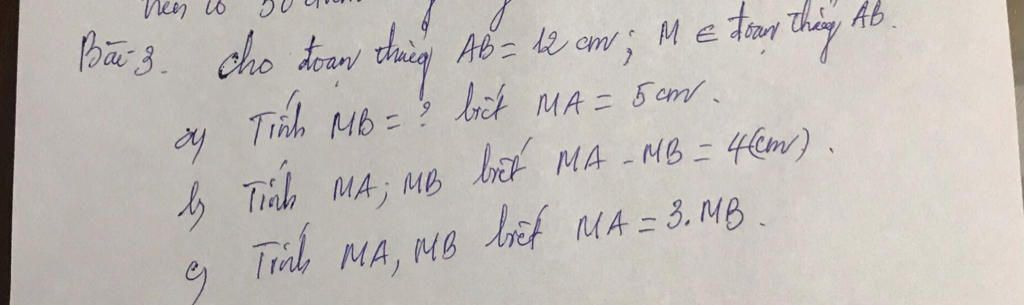 Bài 3. Cho đoạn thẳng AB = 12 cm; M ∈ đoạn thẳng AB.
a) Tính MB = ? biết MA = 5 cm.
b) Tính MA; MB biết MA - MB = 4(cm).
c) Tính MA, MB biết MA = 3.MB.